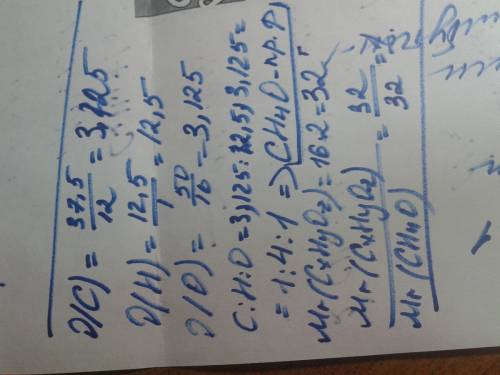 D(C) = 37,5/12 = 3,125
D(H) = 12,5/1 = 12,5
D(O) = 50/16 = 3,125
C:H:O = 3,125:12,5:3,125 =
= 1:4:1 => CH4O - пр. Р
Mr(CxHyOz) = 16·2 = 32
Mr(CxHyOz)/Mr(CH4O) = 32/32 =